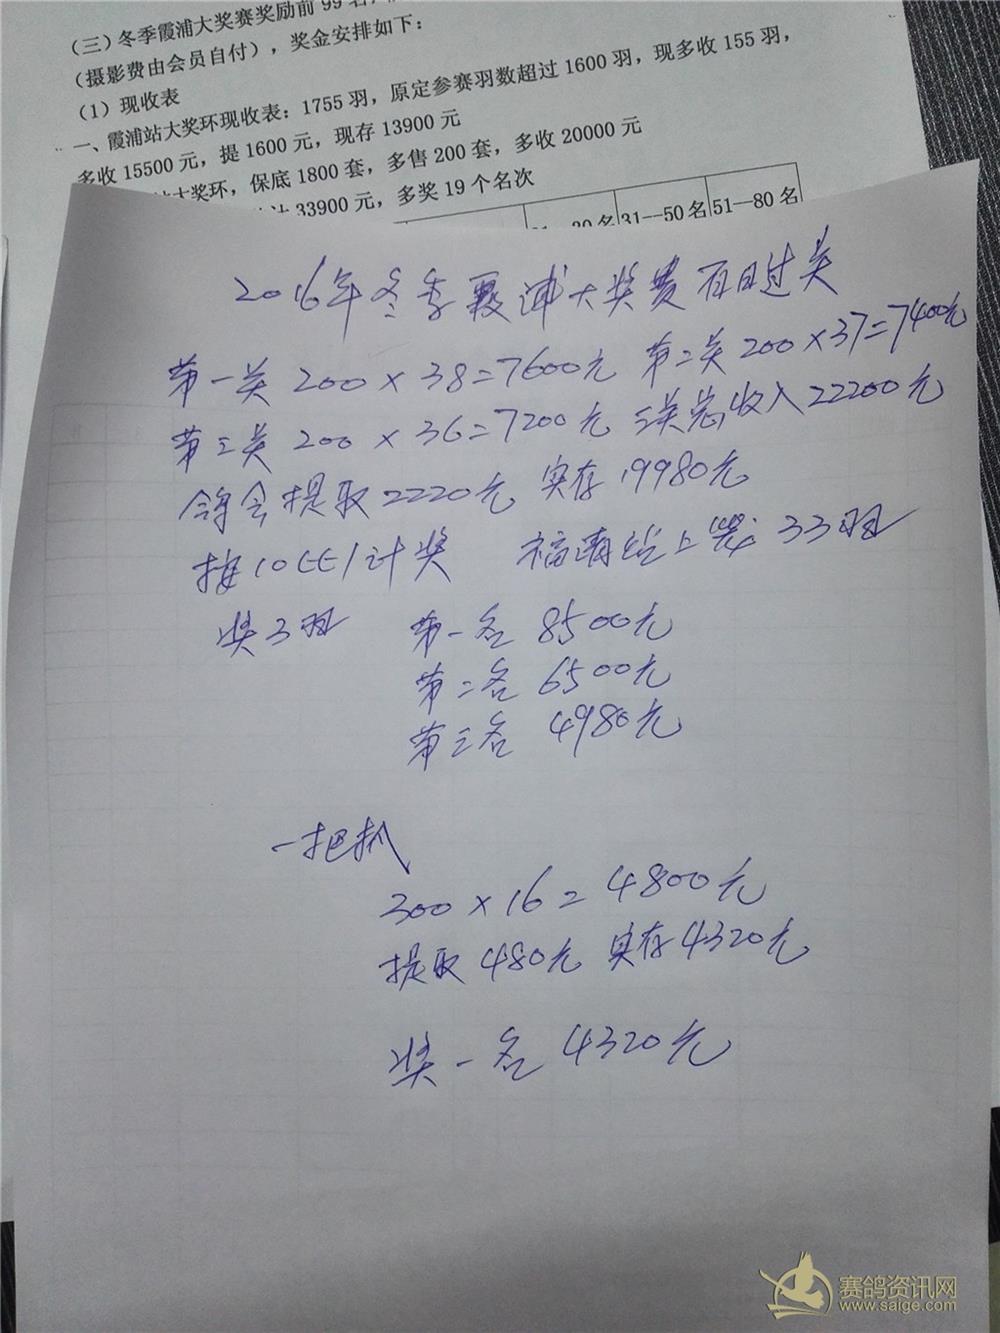 （三）冬季霞浦大奖赛奖励前99名，
（摄影费由会员自付），奖金安排如下：
（1）现收表
一、霞浦站大奖环现收表：1755羽，原定参赛羽数超过1600羽，现多收155羽，
多收15500元，提1600元，现存13900元
大奖环，保底1800套，多售200套，多收20000元
33900元，多奖19个名次
31--50名 51--80名
2016年冬季霞浦大奖赛百日过关
第一关 200×38=7600元 第二关 200×37=7400元
第三关 200×36=7200元 三关总收入22200元
鸽会提取2220元 实存19980元
按10比1计奖 福清站上笼33羽
奖3羽 第一名 8500元
第二名 6500元
第三名 4980元
一把抓
300×16=4800元
提取480元 实存4320元
奖一名 4320元
赛鸽资讯网
www.saige.com